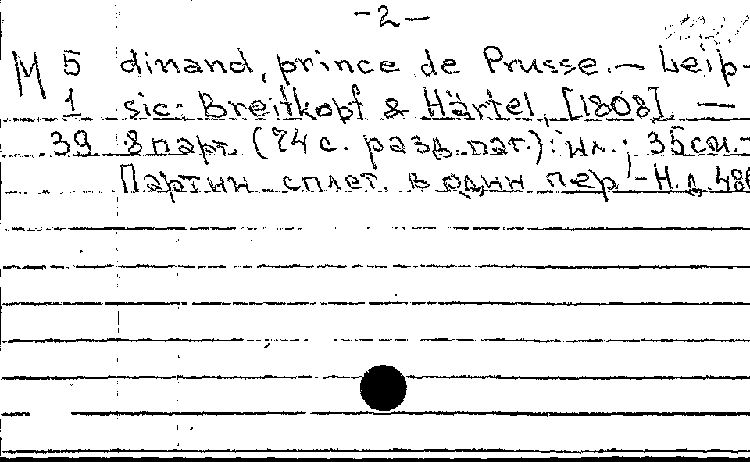 -2-
М 5 dinand, prince de Prusse. - Leip-
1 sic: Breitkopf & Härtel, [1808]. -
39 8 парт. (74 с. разд. паг.): ил.; 35 см. -
Партии сплет. в один пер. - Н.д. 486